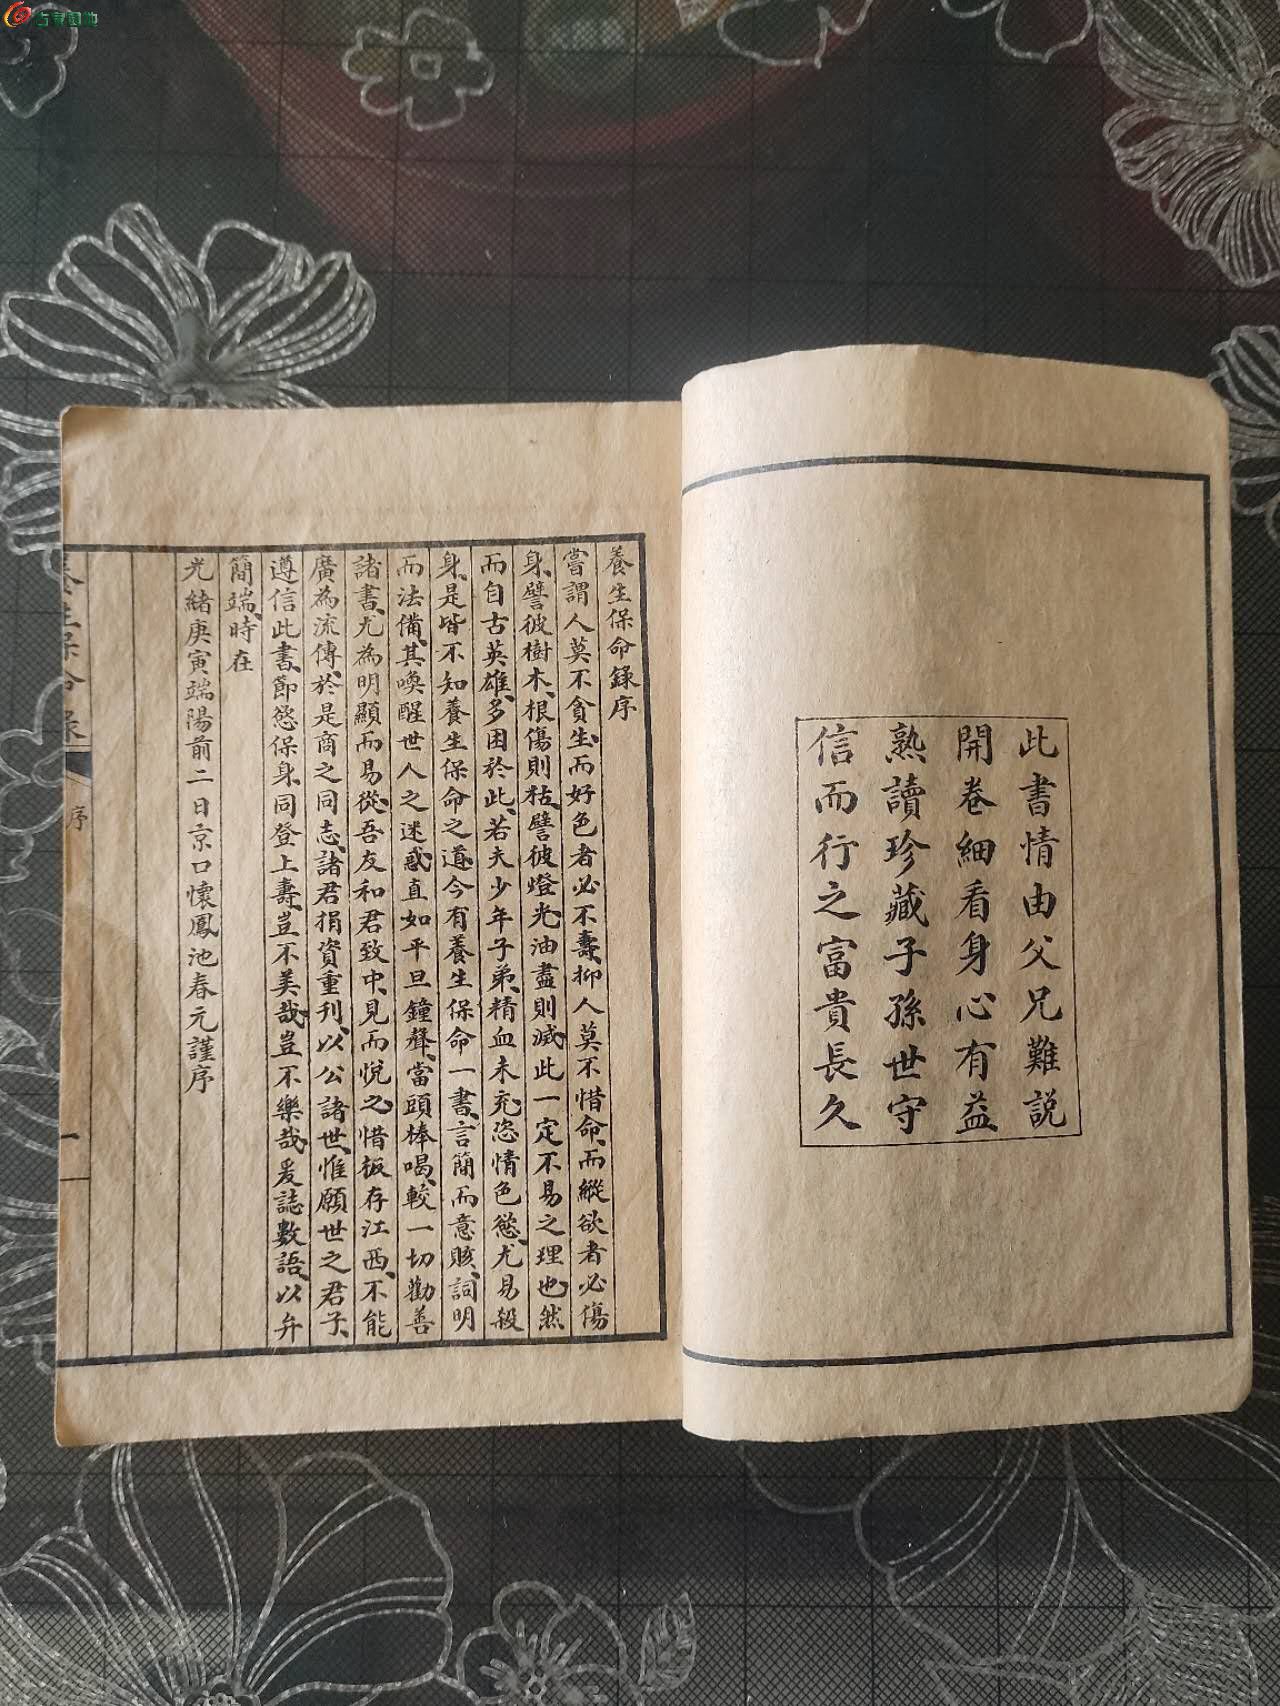 此書情由父兄難説
開卷細看身心有益
熟讀珍藏子孫世守
信而行之富貴長久
養生保命錄序
嘗謂人莫不貪生、而好色者必不壽、抑人莫不惜命、而縱欲者必傷
身、譬彼樹木、根傷則枯、譬彼燈光、油盡則滅、此一定不易之理也、然
而自古英雄、多困於此、若夫少年子弟、精血未充、恣情色慾、尤易殺
身、是皆不知養生保命之道、今有養生保命一書、言簡而意賅、詞明
而法備、其喚醒世人之迷惑、直如平旦鐘聲、當頭棒喝、較一切勸善
諸書、尤為明顯而易從、吾友和君致中、見而悅之、惜板存江西、不能
廣為流傳、於是商之同志、諸君捐資重刊、以公諸世、惟願世之君子、
遵信此書、節慾保身、同登上壽、豈不美哉、豈不樂哉、爰誌數語、以弁
簡端、時在
光緒庚寅端陽前二日京口懷鳳池春元謹序
養生保命錄
序
一
古家園地